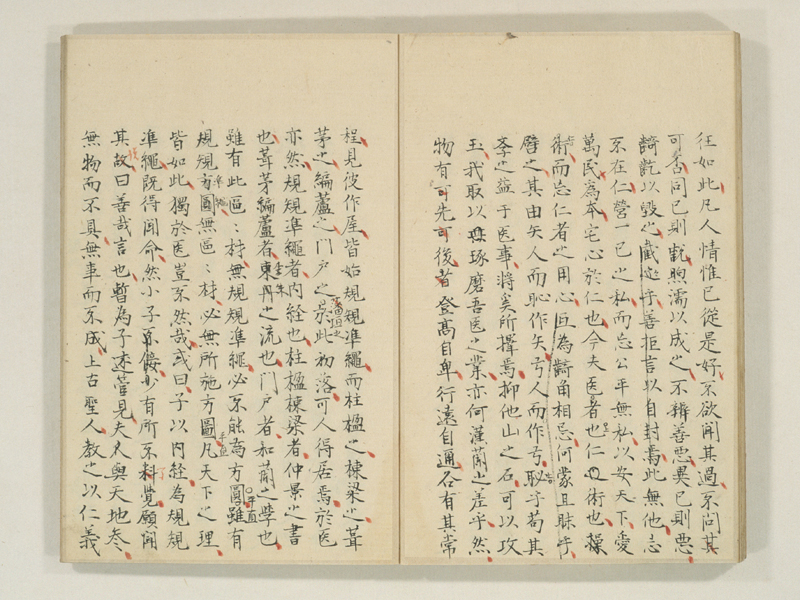 往如此凡人情惟已從是好不欲聞其過不問其
可否同已則煦濡以成之不辨善惡異已則惡
齮齕以毀之訑訑乎善拒言以自封焉此無他志
不在仁營一已之私而忘公平無私以安天下愛
萬民爲本宅心於仁也今夫医者也仁之術也操
術而忘仁者之用心叵為齮角相忌何蒙且昧乎
譬之其由矢人而恥作矢弓人而作弓恥乎苟其
之益于医事將奚所擇焉抑他山之石可以攻
玉我取以琢磨吾医之業亦何漢蘭之差乎然
物有可先可後者登高自卑行遠自邇各有其常
程見彼作屋皆始規規凖繩而柱楹之棟梁之葺
茅之編蘆之門戶之墻垣之於此初落可人得居焉於医
亦然規規凖繩者内経也柱楹棟梁者仲景之書
也葺茅編蘆者東丹之流也門戶者和蘭之學也
雖有此區〻材無規規凖繩必不能為方圓雖有
規規方圓無區〻材必無所施方圓平直凡天下之理
皆如此獨於医豈不然哉或曰子以内経為規規
凖繩既得聞命然小子不佞少有所不覺願聞
其故曰善哉言也暫為子述管見夫人與天地参
無物而不具無事而不成上古聖人教之以仁義